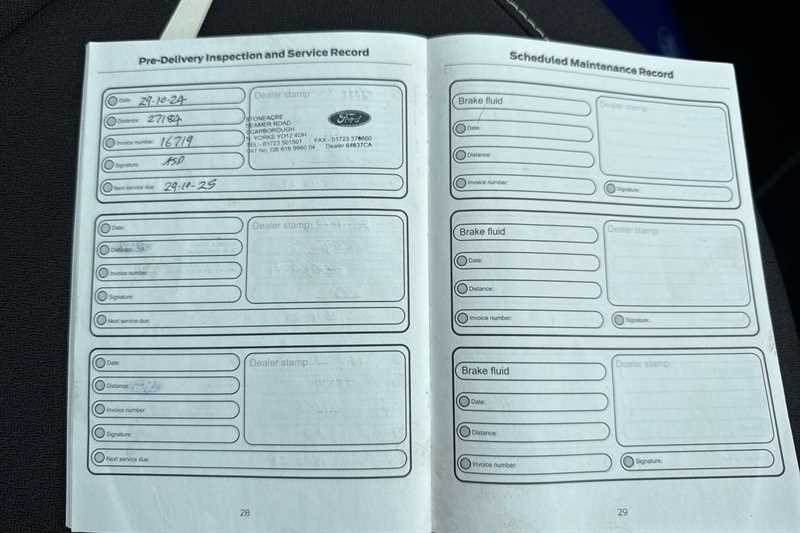 Pre-Delivery Inspection and Service Record
Date: 29.10-24
Distance: 27184
Invoice number: 16719
Signature:
Next service due: 29.10-25
Dealer stamp
STONEACRE
SEAMER ROAD
SCARBOROUGH
N. YORKS YO12 4DH
TEL - 01723 501501 FAX - 01723
Dealer
Ford
Date:
Distance:
Invoice number:
Signature:
Next service due:
Dealer stamp
Date:
Distance:
Invoice number:
Signature:
Next service due:
Dealer stamp
28
Scheduled Maintenance Record
Brake fluid
Date:
Distance:
Invoice number:
Dealer stamp
Signature:
Brake fluid
Date:
Distance:
Invoice number:
Dealer stamp
Signature:
Brake fluid
Date:
Distance:
Invoice number:
Dealer stamp
Signature:
29